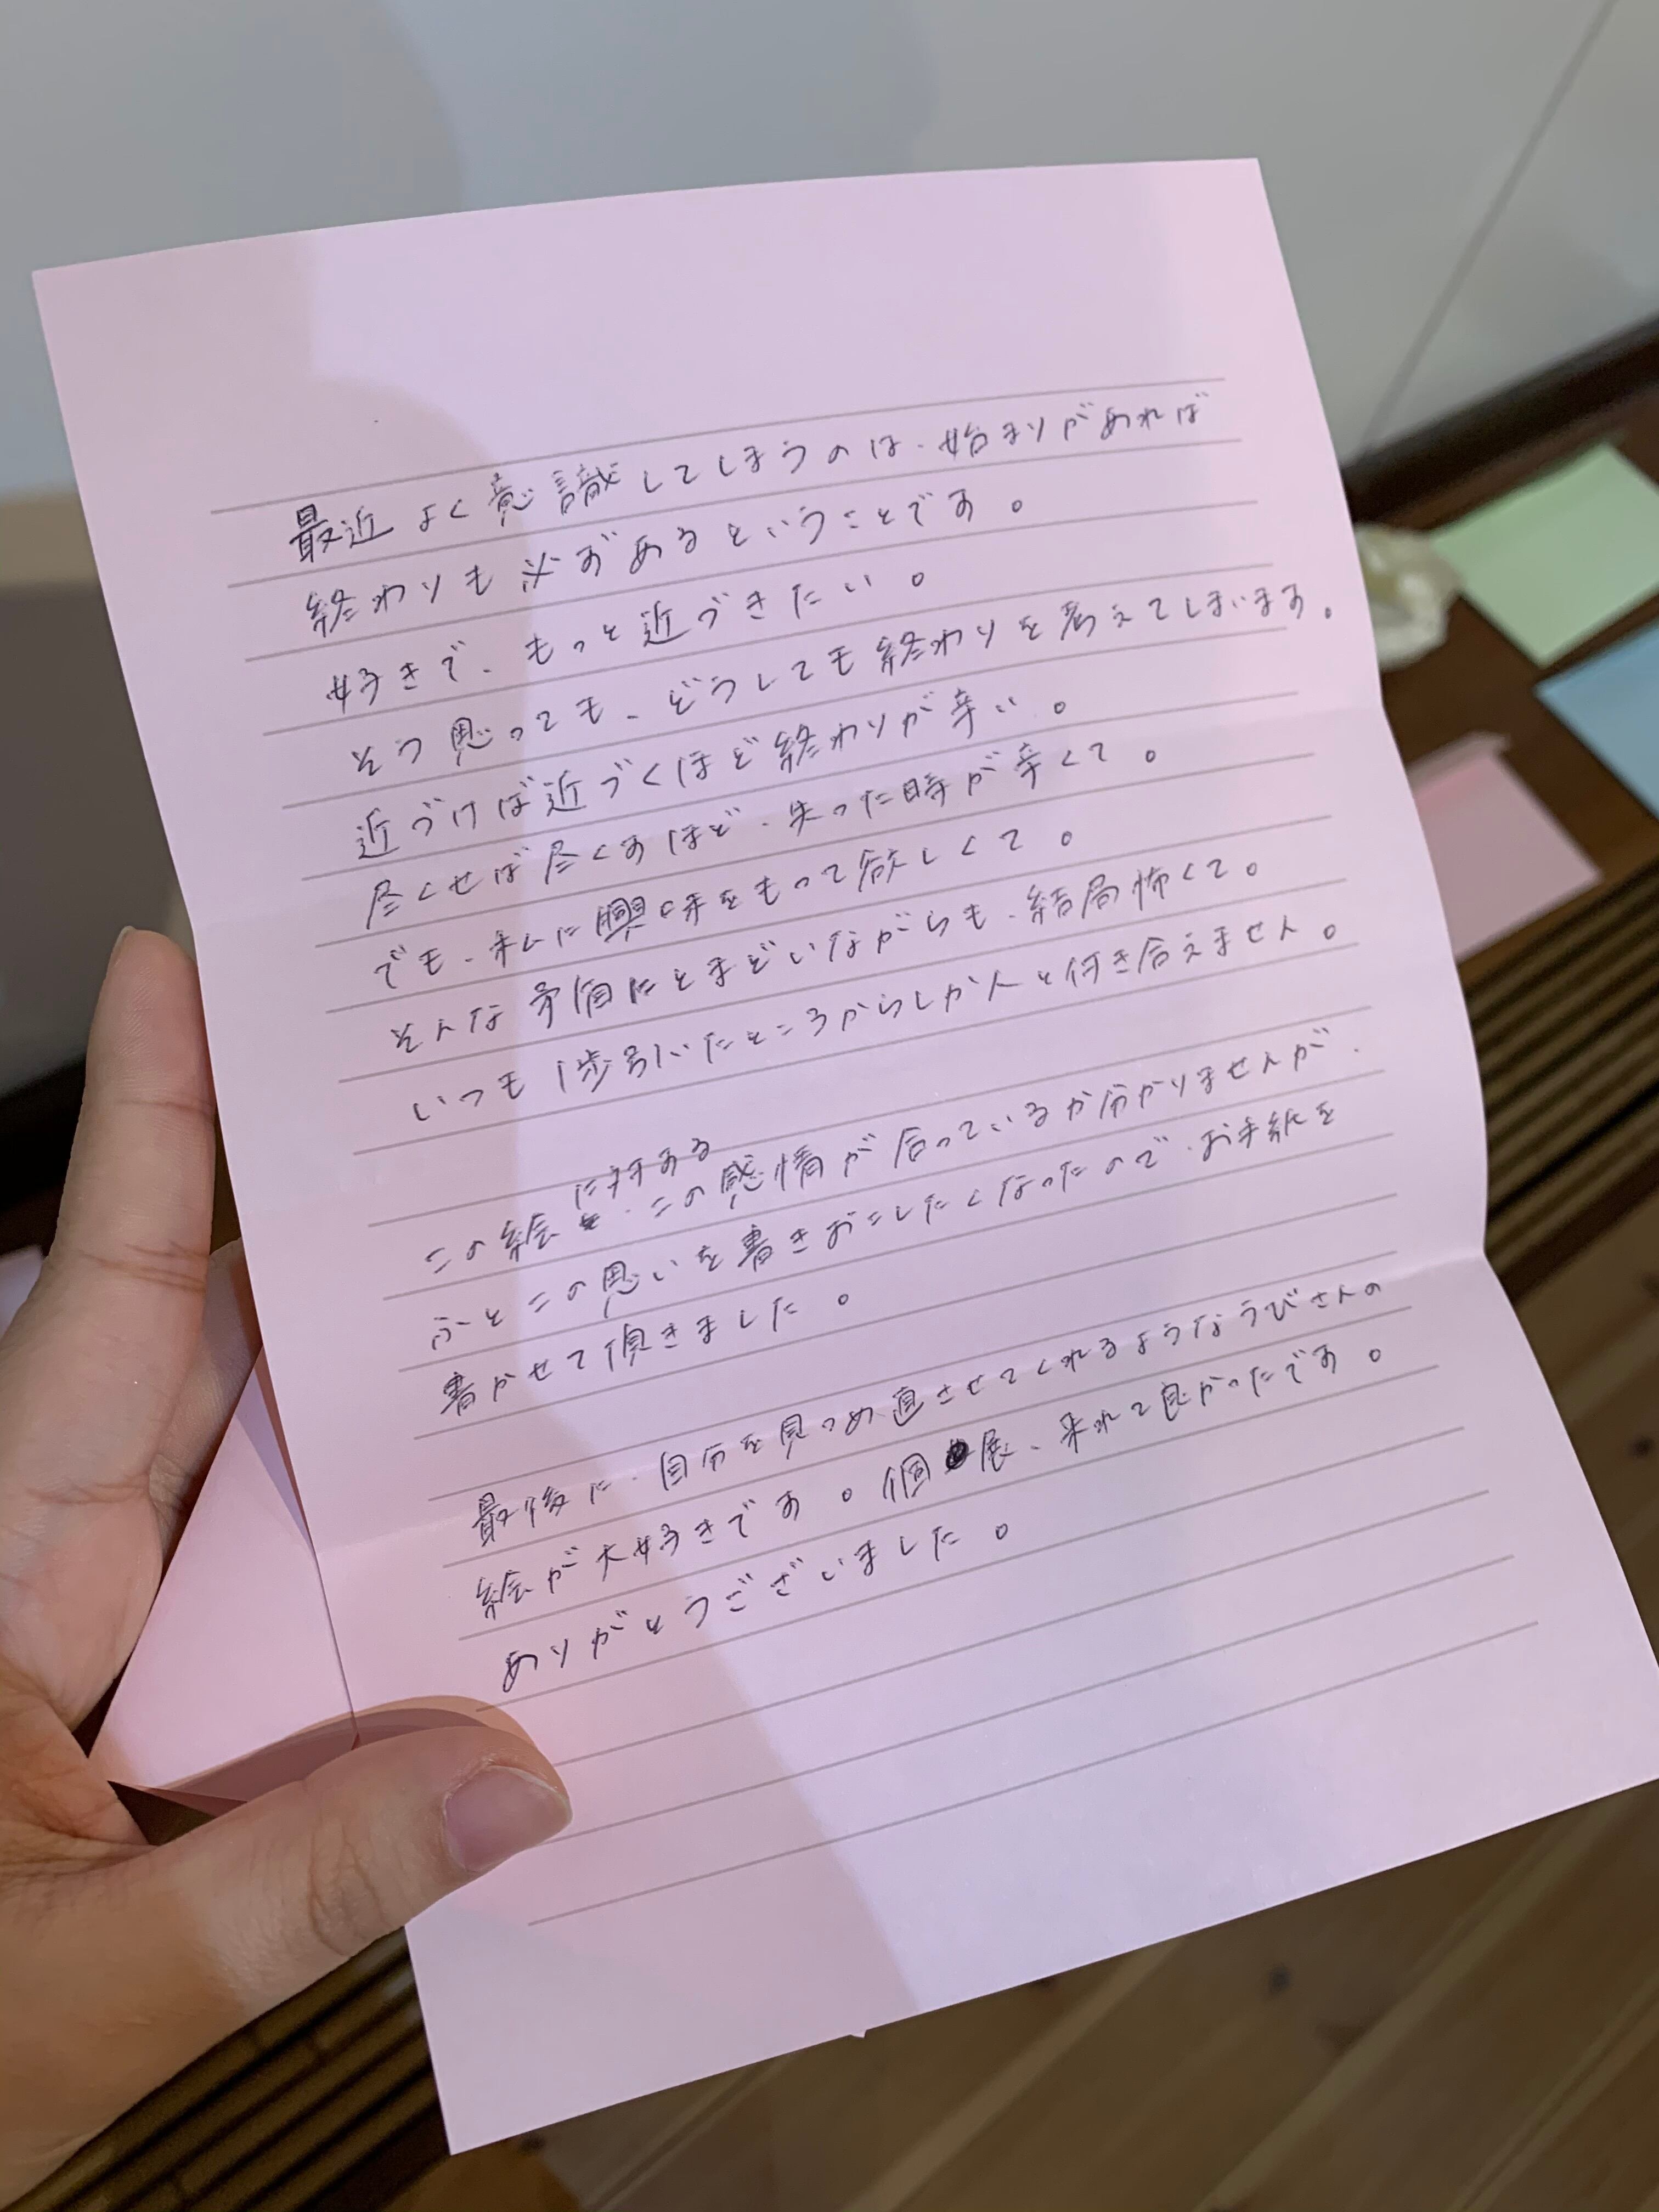 最近よく意識してしまうのは、始まりがあれば
終わりも必ずあるということです。
好きで、もっと近づきたい。
そう思っても、どうしても終わりを考えてしまいます。
近づけば近づくほど終わりが辛い。
尽くせば尽くすほど、失った時が辛くて。
でも、私に興味をもって欲しくて。
そんな矛盾にとまどいながらも、結局怖くて。
いつも1歩引いたところからしか人と付き合えません。
この絵に対する、この感情が合っているか分かりませんが、
ふとこの思いを書きおこしたくなったので、お手紙を
書かせて頂きました。
最後に、自分を見つめ直させてくれるようなうびさんの
絵が大好きです。個展、来れて良かったです。
ありがとうございました。